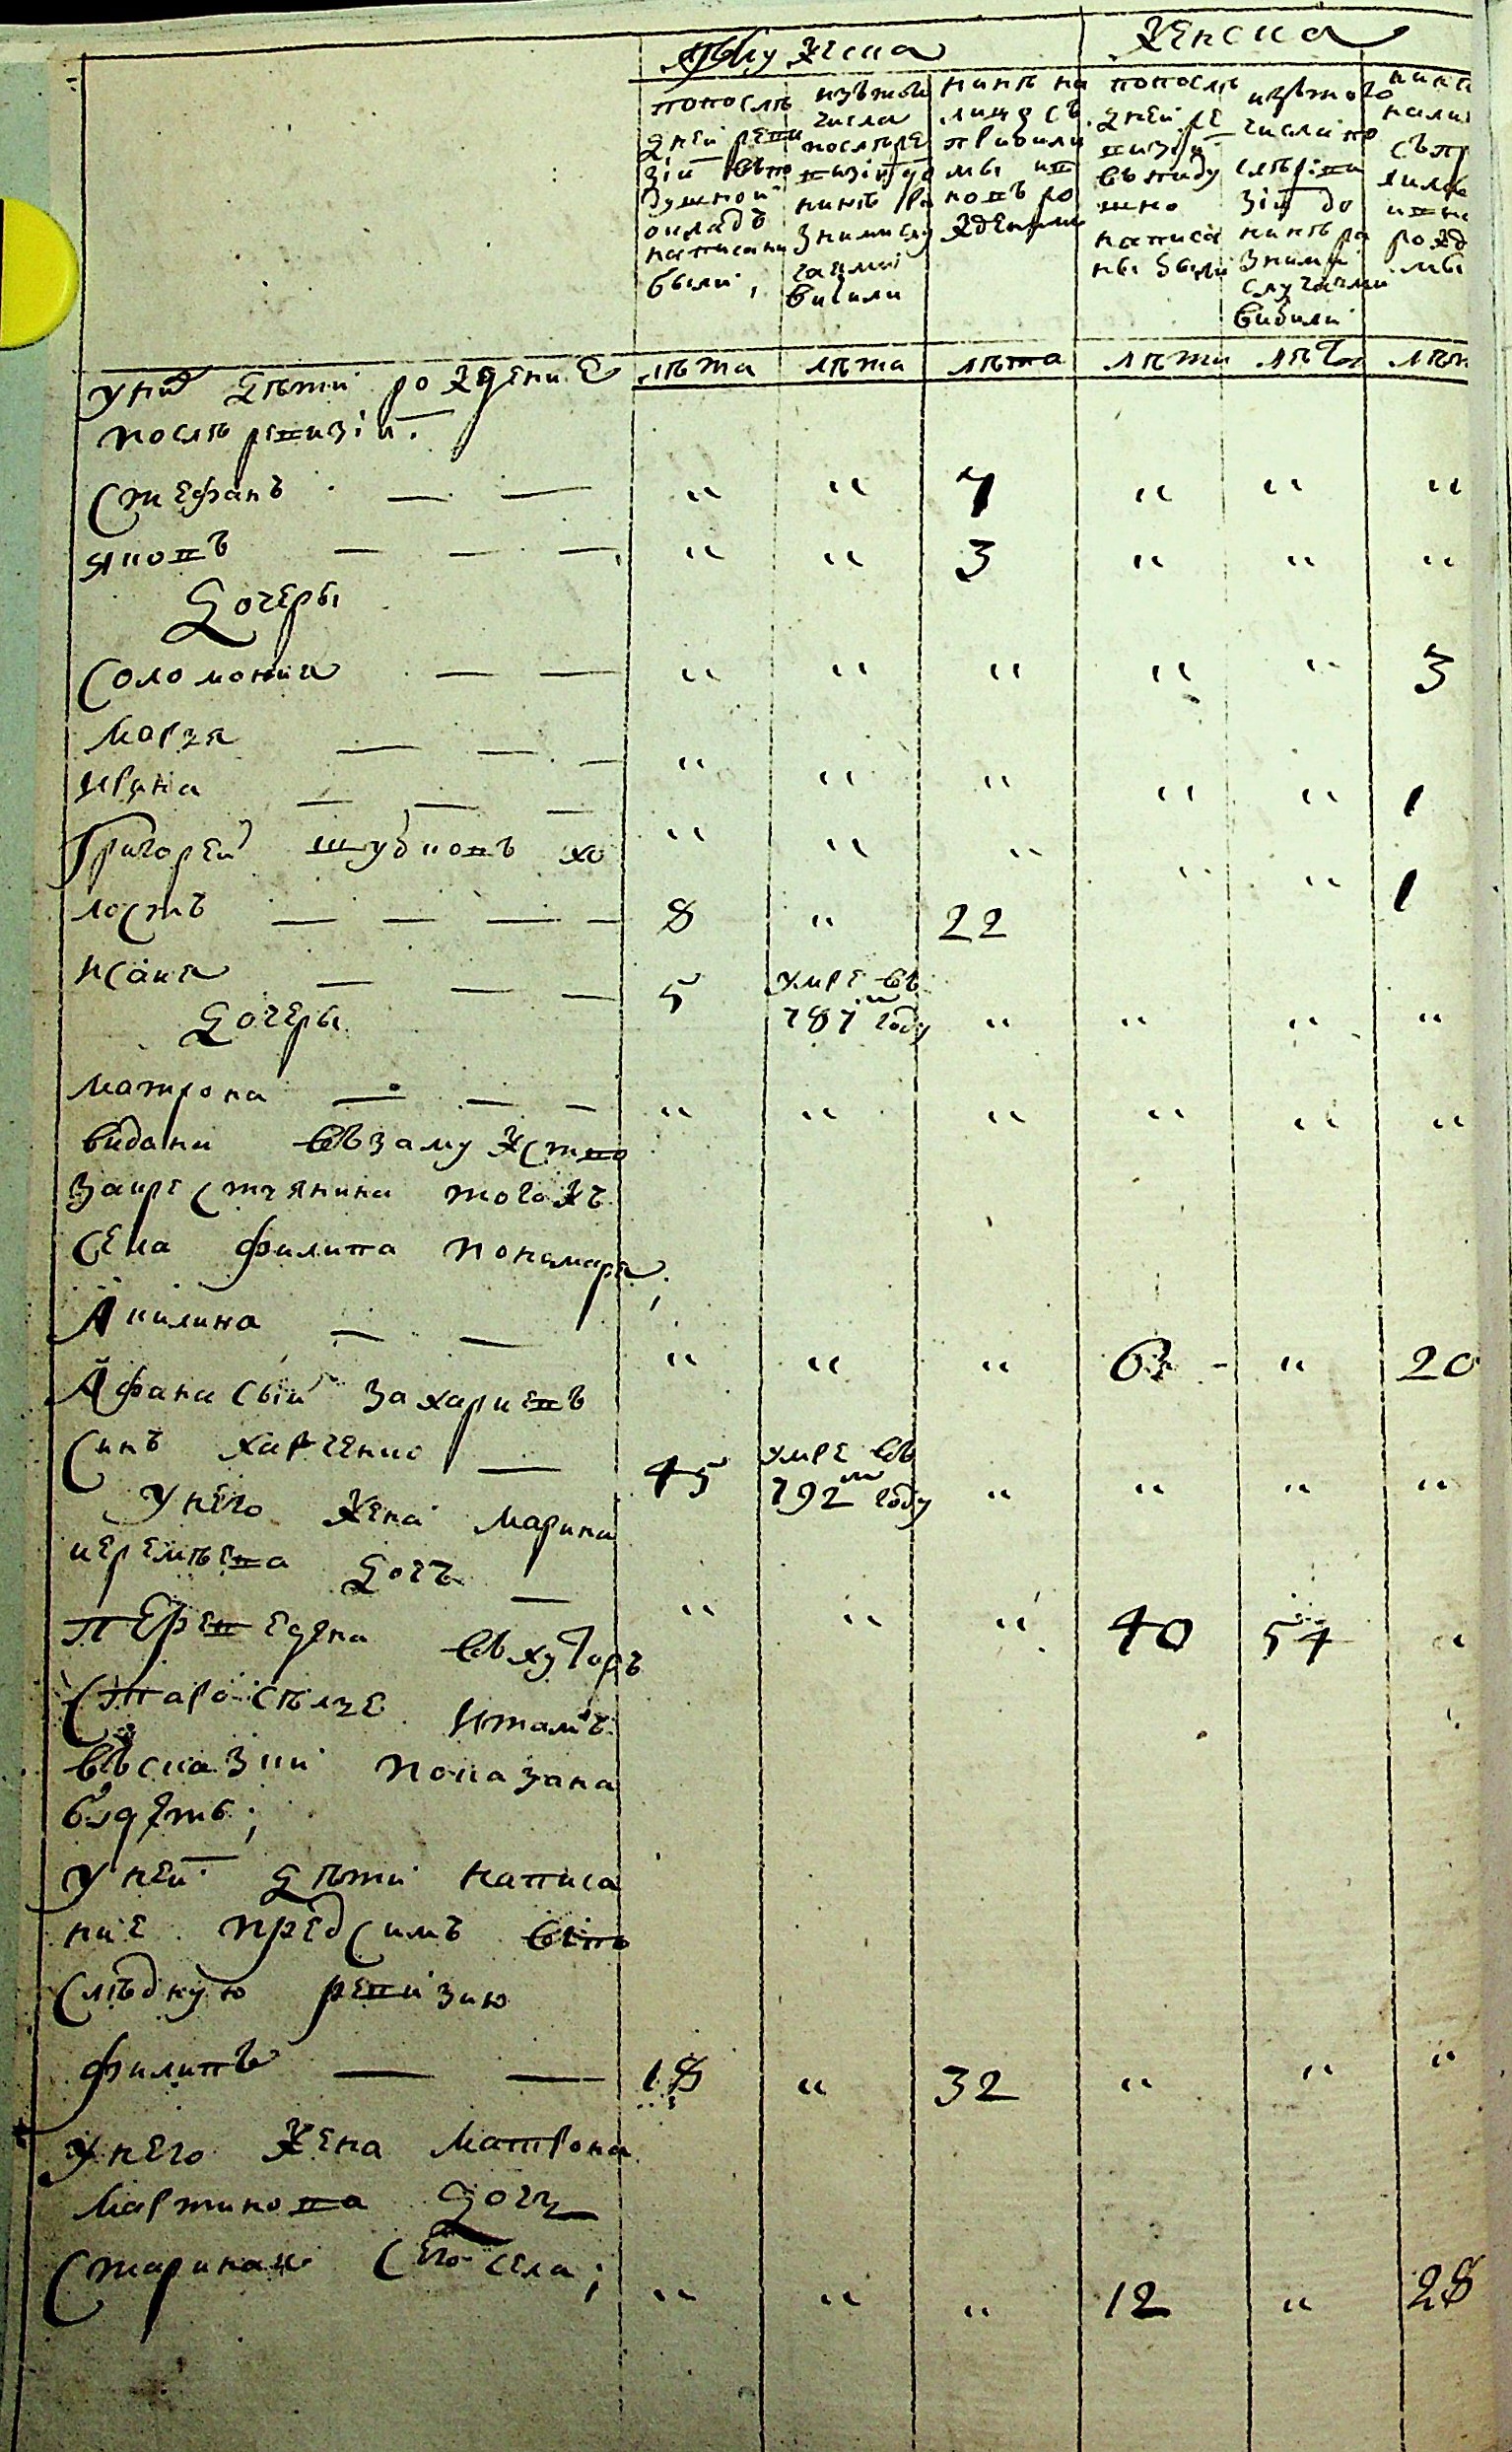 Мужеска
Женска
по после
дней реви
зіи въ по
душной
окладъ
написани
были,
изътого
числа
послѣ ре
визіи до
нинѣ ра
зними слу
чаями
вибили
нинѣ на
лицо съ
прибили
ми и в
новъ ро
жденими
по послѣ
дней ре
визіи
въ виду
шно
написа
ны были
изътого
числа по
слѣ реви
зіи до
нинѣ ра
зними
случаями
вибили
нинѣ
нали
съ пр
били
и вно
рожд
ми
лѣта лѣта лѣта лѣта лѣта лѣт
У них дѣти рожденніе
послѣ ревизіи.
Стефанъ — — " " 7 " " "
Яковъ — — — " " 3 " " "
Дочеры
Соломонія — — " " " " " 3
Марѳя — — — " " " " " 1
Ирина — — — " " " " " 1
Григорей Шубковъ хо
лостъ — — — — 8 " 22
Исаия — — — 5 умре въ 787м году " " " "
Дочеры
Матрона — — — " " " " " "
видани въ замужство
за крестянина тогожъ
села Филипа Пономаря;
Акилина — — " " " 6 - " 20
Афанасый Захариевъ
синъ Харченко — 45 умре въ 792м году " " " "
У него жена Марина
Иеремѣева дочь — " " " 40 54 "
переведена въ хуторъ
Старосѣлзе и тамъ
въ сказки показана
будетъ;
У ней дѣти написа
ніе предсимъ въ по
слѣдную ревизию
Филипъ — — 18 " 32 " " "
У него жена Матрона
Мартинова дочь
стариная сего села; " " " 12 " 28